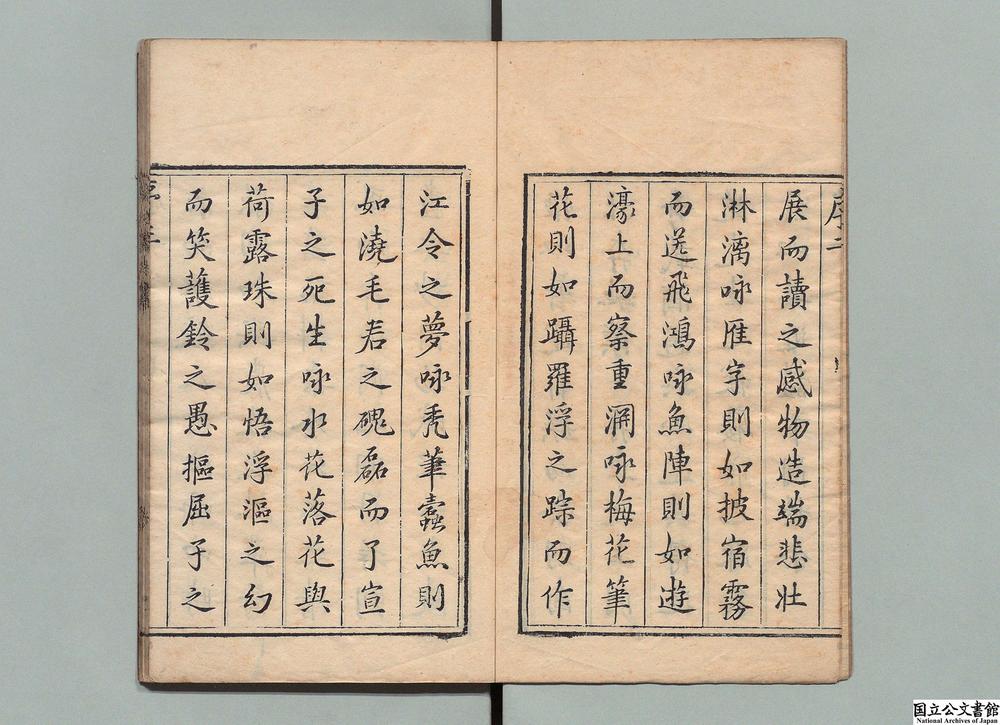 序二
展而讀之感物造端悲壯
淋漓咏雁字則如披宿霧
而送飛鴻咏魚陣則如遊
濠上而察重淵咏梅花筆
花則如躡羅浮之踪而作
江令之夢咏禿筆蠹魚則
如澆毛君之磈磊而了宣
子之死生咏水花落花與
荷露珠則如悟浮漚之幻
而笑護鈴之愚摳屈子之
国立公文書館
National Archives of Japan